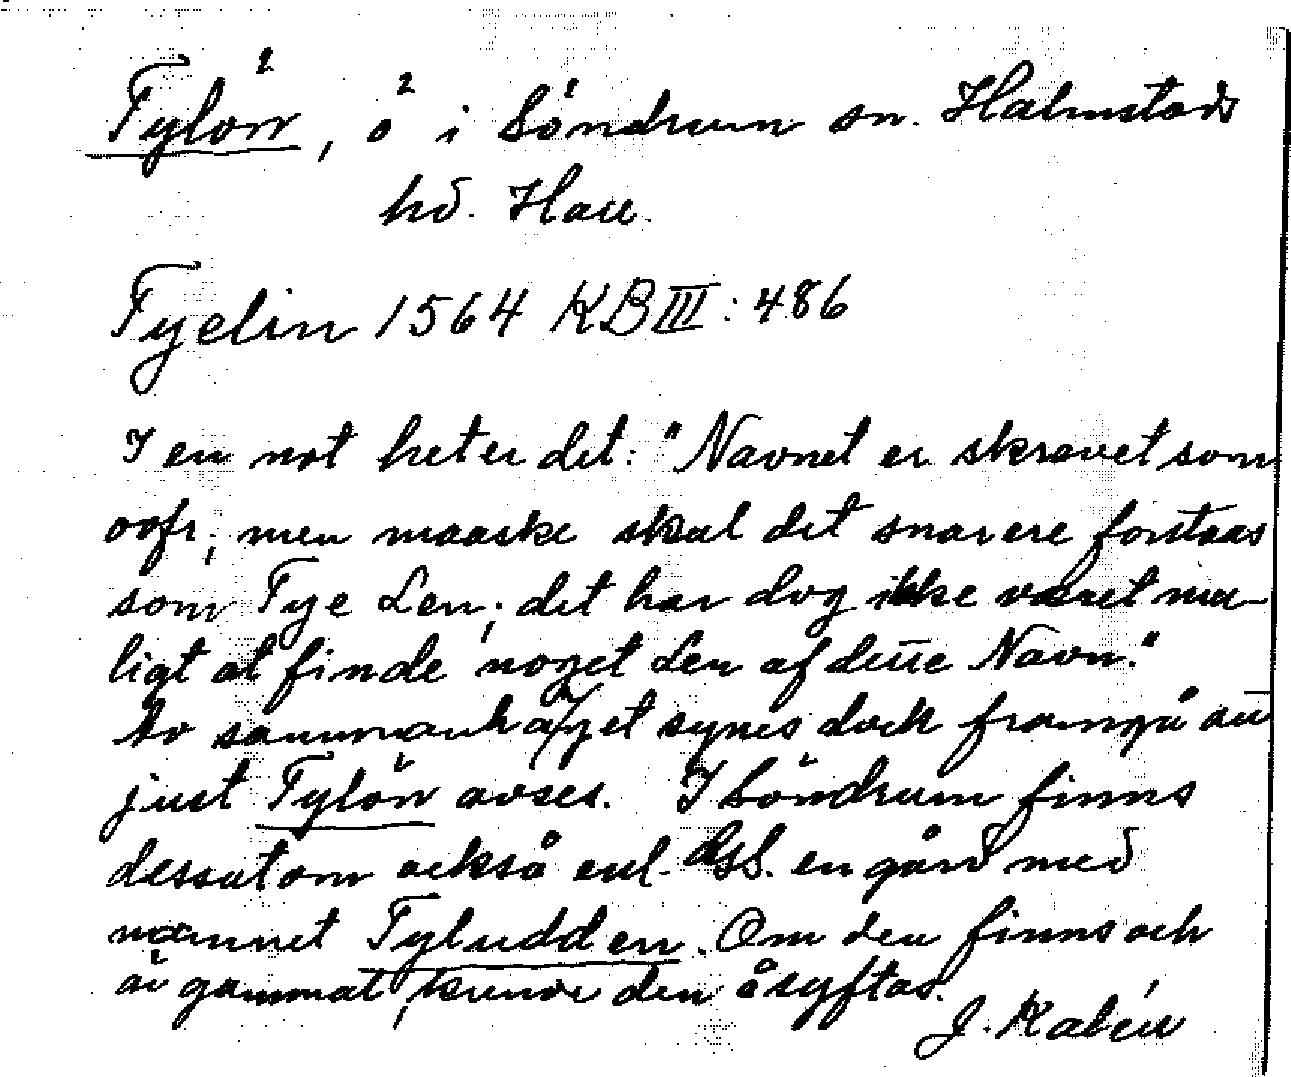 Tylön, ö i Söndrum sn. Halmstads
hd. Hall.
Tyelin 1564 KB III: 486
I en not heter det: "Navnet er skrevet som
ovfr, men maaske skal det snarere forstaas
som Tye Len; det har dog ikke været mu-
ligt at finde noget Len af dette Navn."
Av sammanhaget synes dock framgå att
just Tylön avses. I Söndrum finns
dessutom också enl. GSS. en gård med
namnet Tyludden. Om den finns och
är gammat, kunde den åsyftas.
J. Kalén